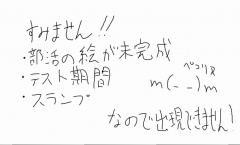 すみません!!
・部活の絵が未完成
・テスト期間
・スランプ
ペコリヌ
m(- -)m
なので出現できません!